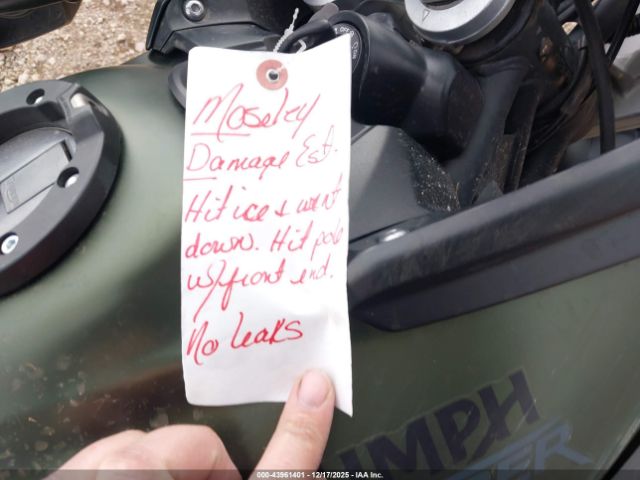 Moseley
Damage Est.
Hit ice & went
down. Hit pole
w/front end.
No leaks
UMPH
GER
000-43961401 - 12/17/2025 - IAA Inc.